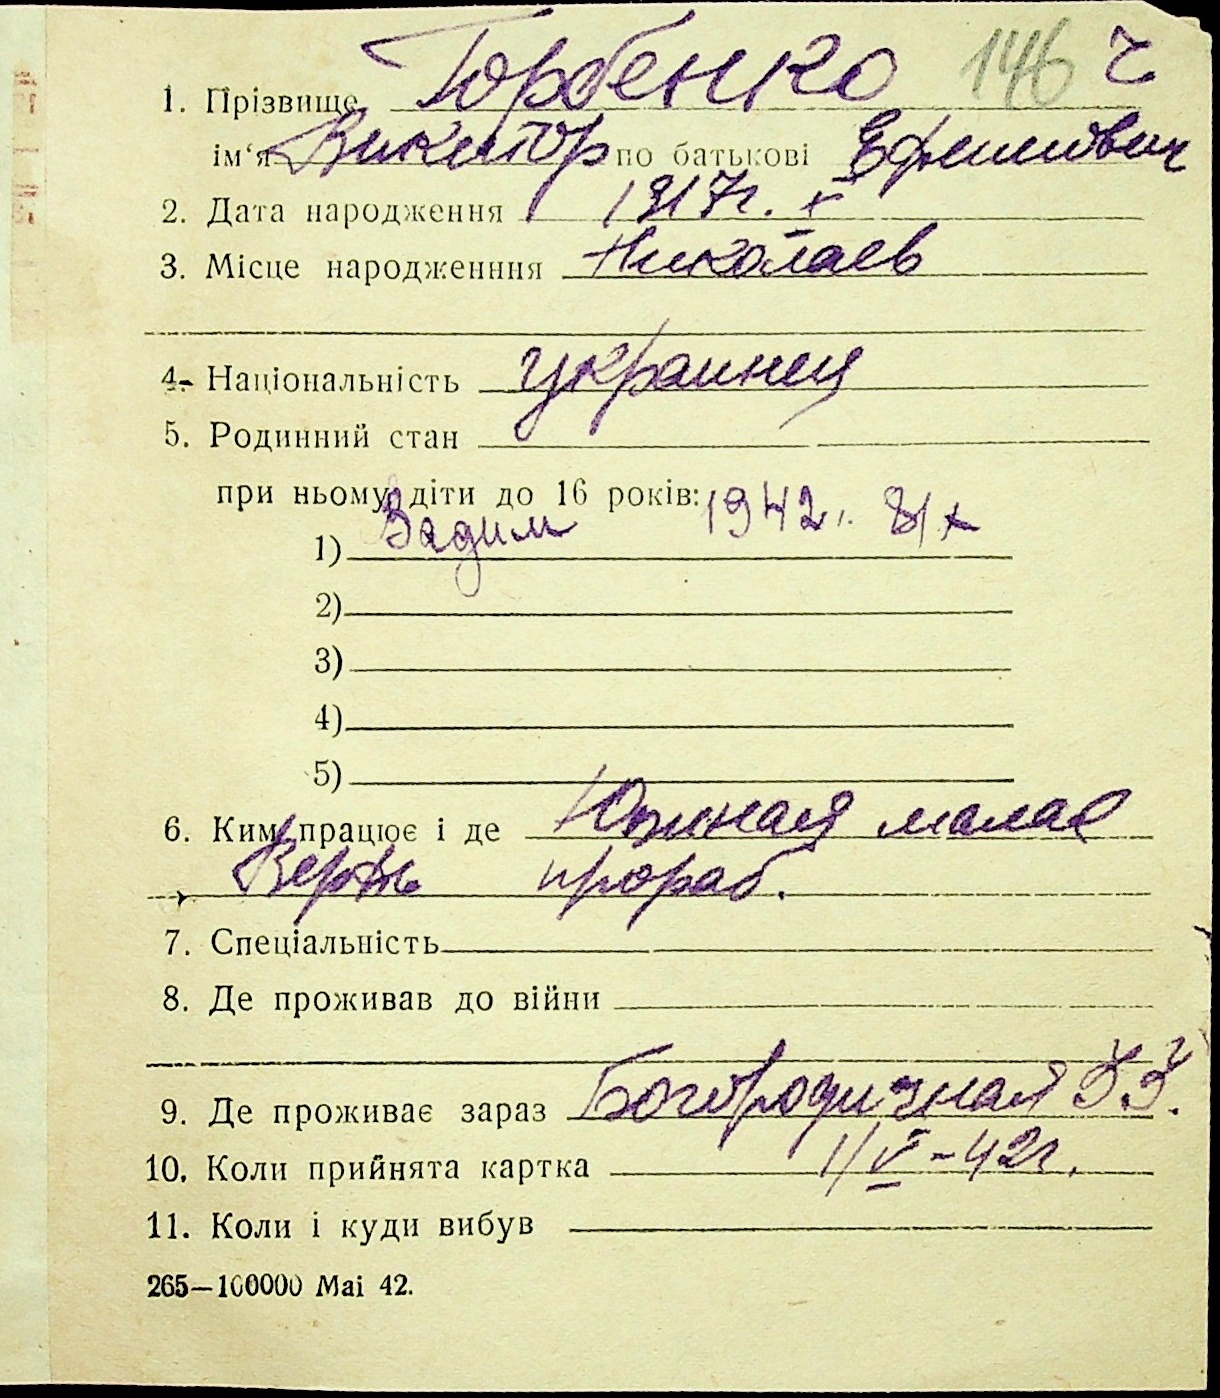 146 ч
1. Прізвище Горбенко
ім‘я Виктор по батькові Ефимович
2. Дата народження 1917г. X
3. Місце народженння Николаев
4. Національність украинец
5. Родинний стан
при ньому діти до 16 років:
1) Вадим 1942г. 8/X
2)
3)
4)
5)
6. Ким працює і де Южная малая
Верфь прораб.
7. Спеціальність
8. Де проживав до війни
9. Де проживає зараз Богородичная 33.
10. Коли прийнята картка 1/V-42г.
11. Коли і куди вибув
265—100000 Mai 42.